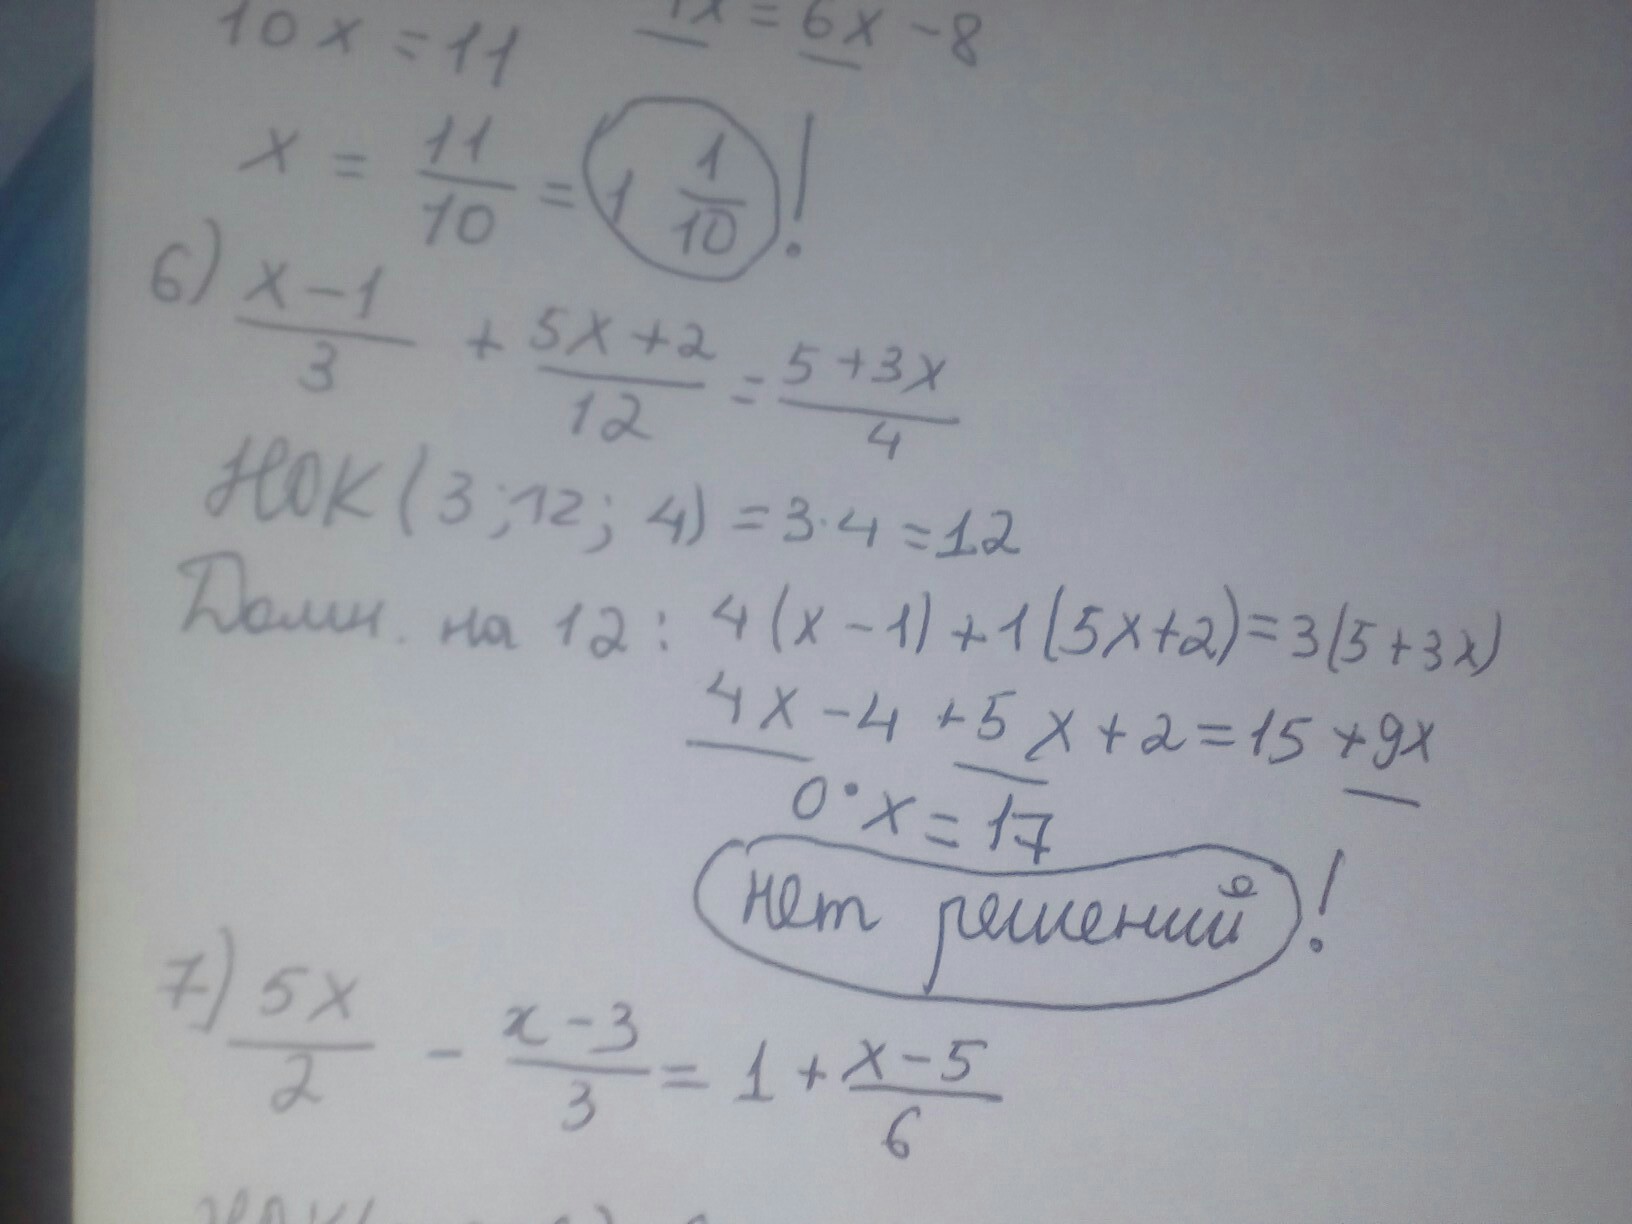 10x = 11
= 6x - 8
x = 11/10 = 1 1/10 !
6) (x-1)/3 + (5x+2)/12 = (5+3x)/4
НОК (3; 12; 4) = 3·4 = 12
Домн. на 12: 4(x-1)+1(5x+2)=3(5+3x)
4x - 4 + 5x + 2 = 15 + 9x
0·x = 17
нет решений !
7) 5x/2 - (x-3)/3 = 1 + (x-5)/6